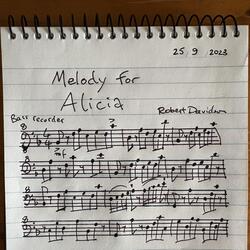 25 9 2023
Melody for
Alicia
Bass recorder
Robert Davidson
mf